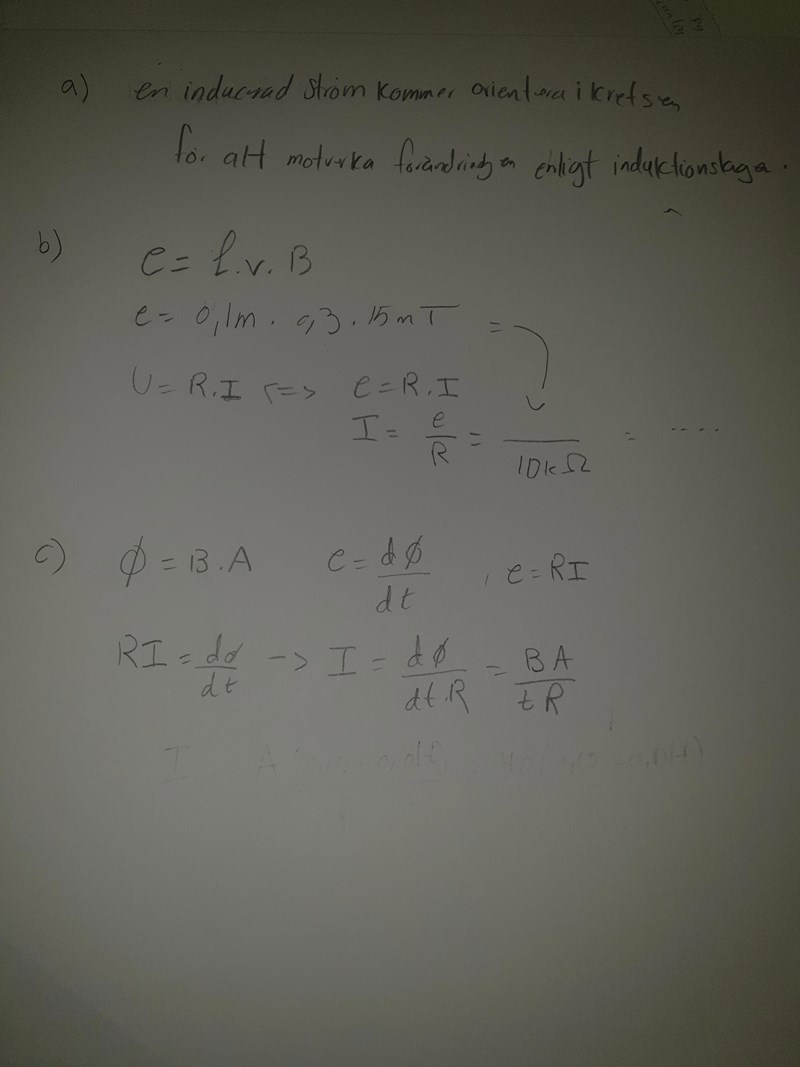 a) en inducerad ström kommer orientera i kretsen
för att motverka förändringen enligt induktionslagen.
b)
e = l.v.B
e = 0,1m . 0,3 . 15mT =
U = R.I <=> e = R.I
I = e/R = /10kΩ = ....
c) φ = B.A e = dφ/dt , e = RI
RI = dφ/dt -> I = dφ/dt.R = BA/tR